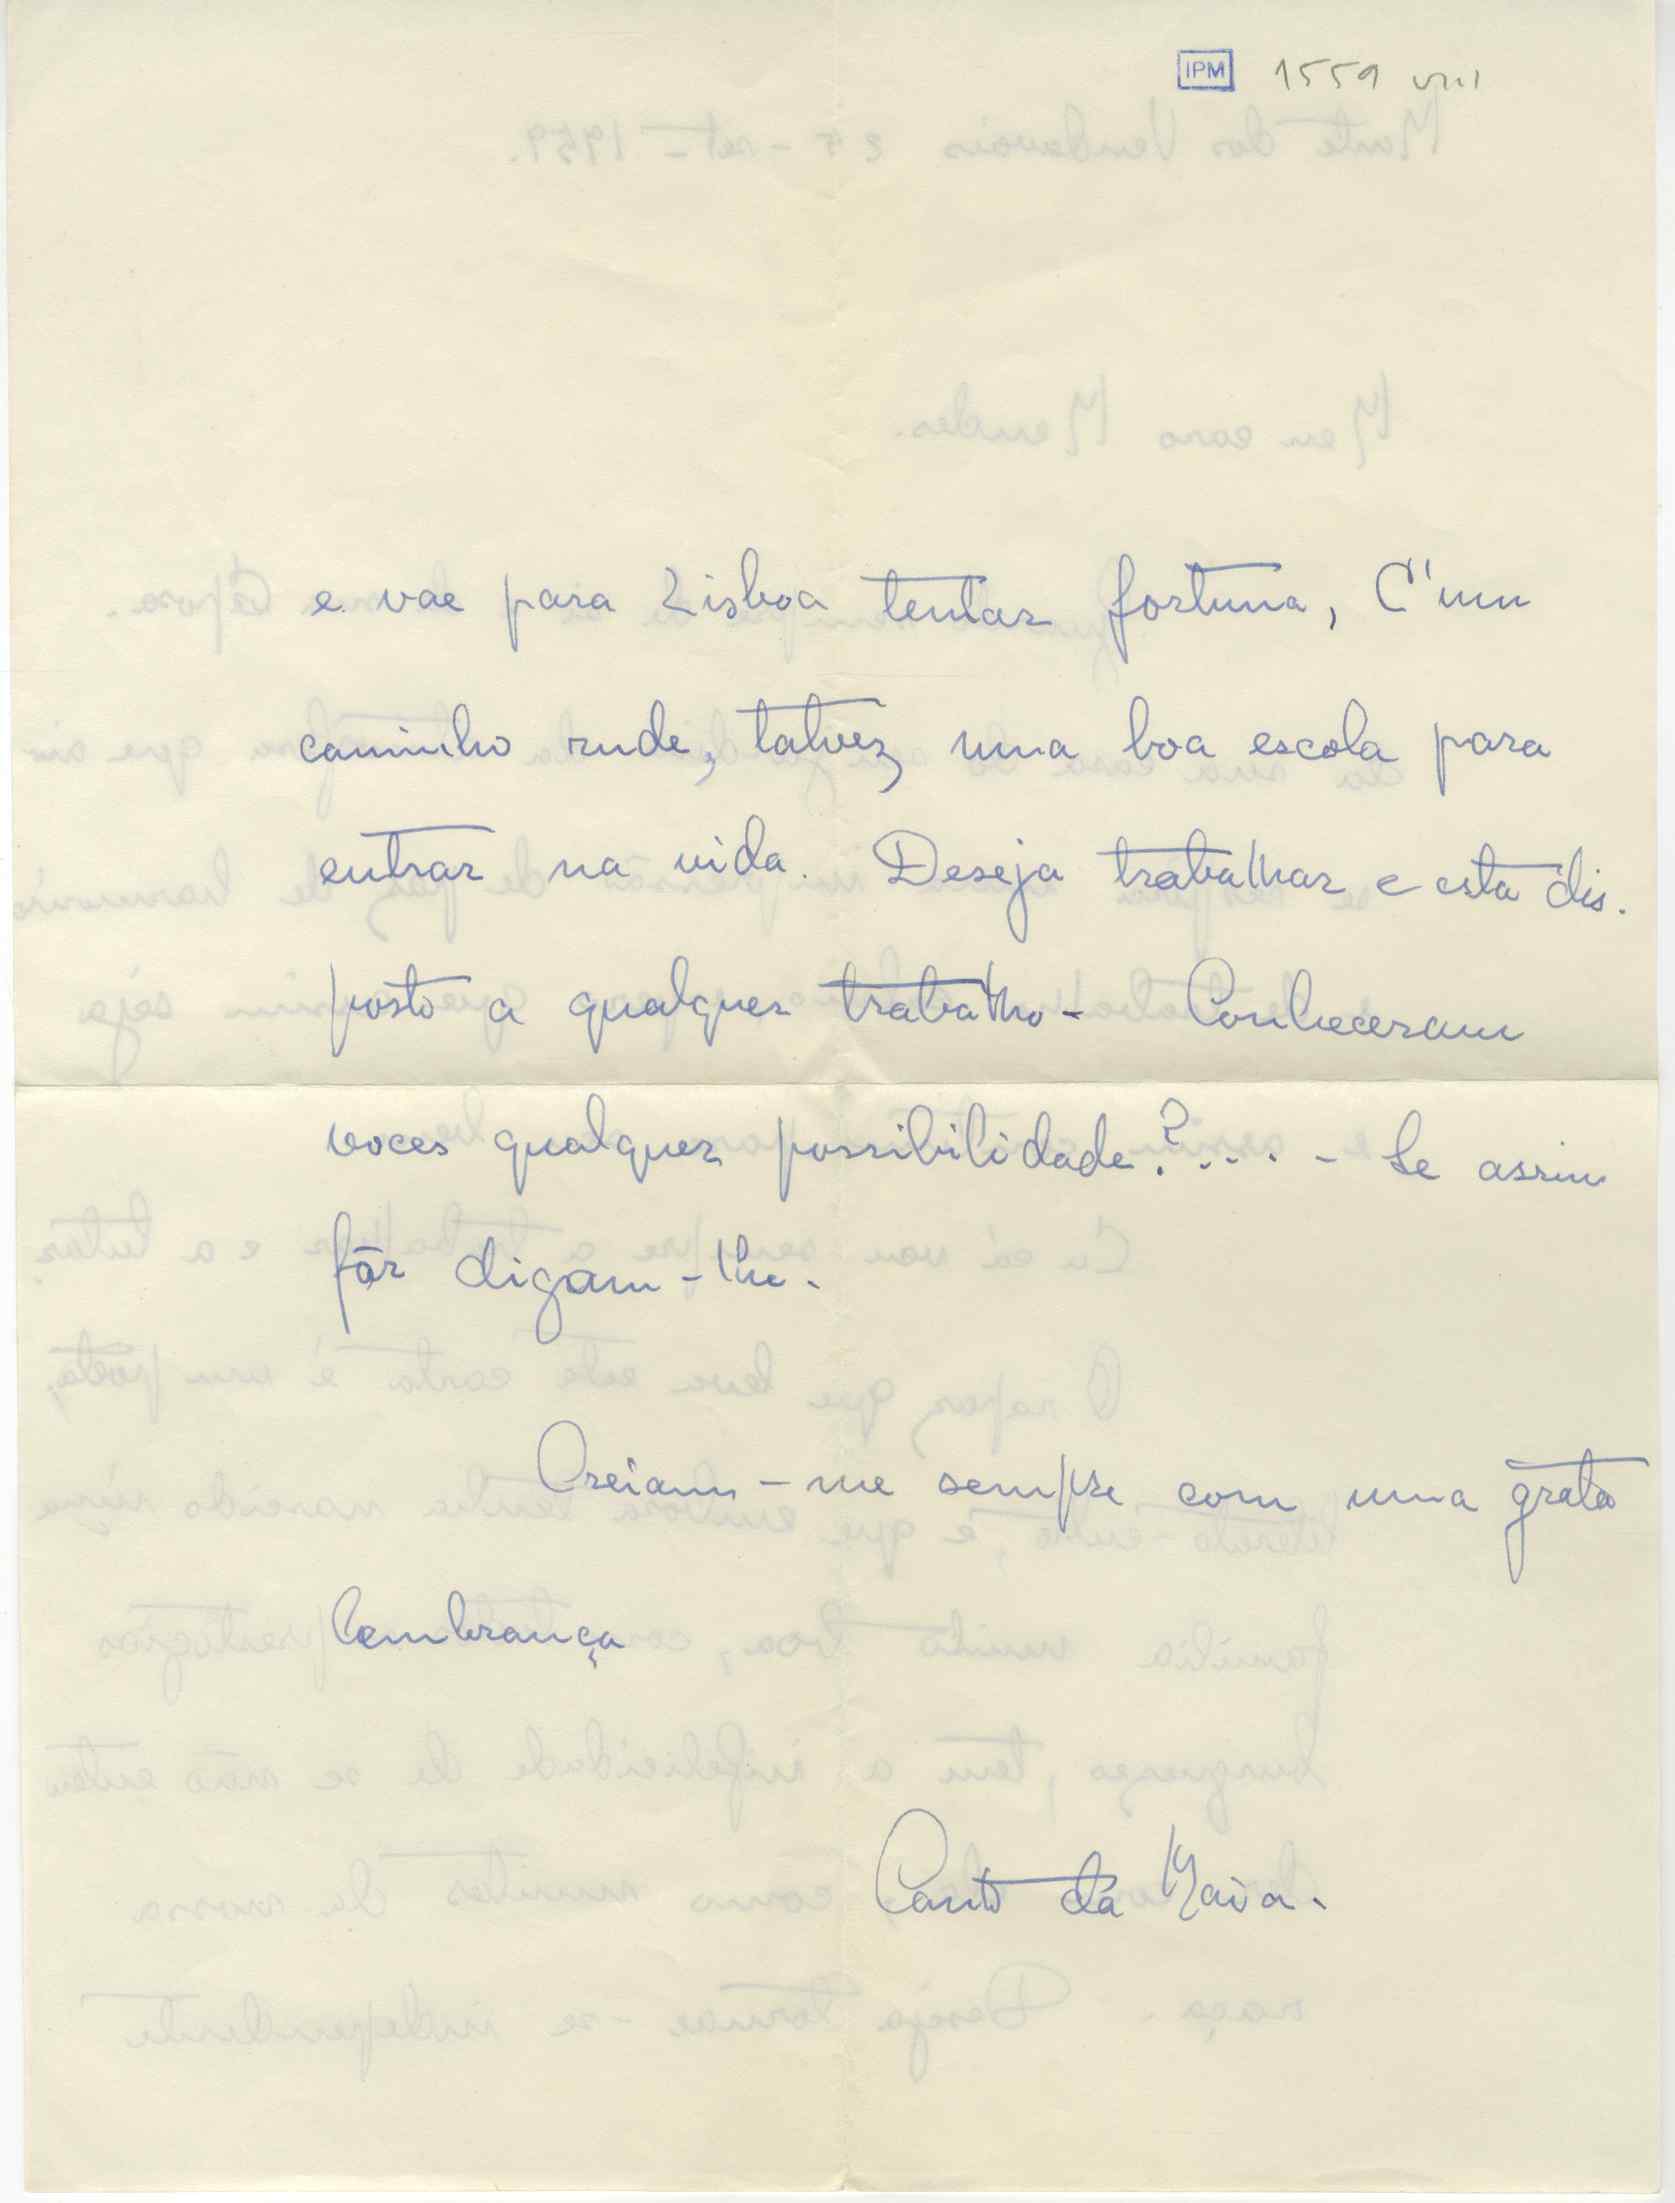 IPM 1559 VIII
e vae para Lisboa tentar fortuna, É um
caminho rude, talvez, uma boa escola para
entrar na vida. Deseja trabalhar e esta dis-
posto a qualquer trabalho - Conheceram
voces qualquer possibilidade?.... - Se assim
fôr digam-lhe.
Creiam-me sempre com uma grata
lembrança
Canto da Maia.